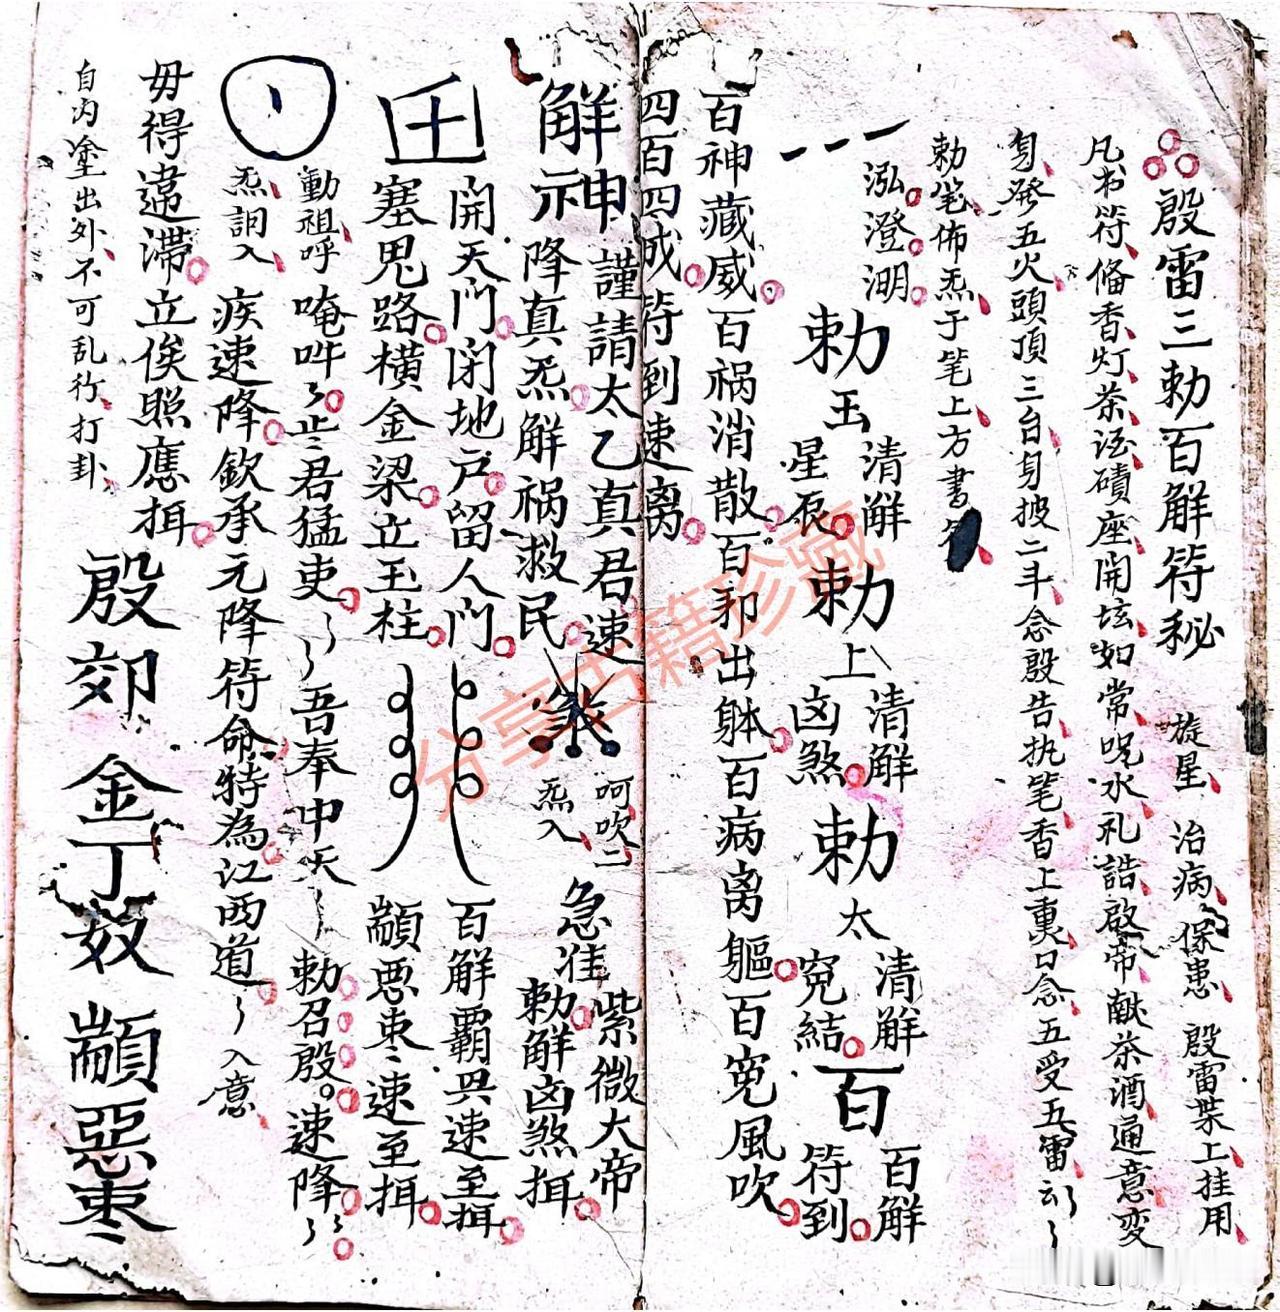 殷雷三勅百解符秘 旋星 治病保患 殷雷枼上挂用
凡书符俻香灯茶酒碛座開坛如常呪水礼誥啟帝献茶酒通意变
身發五火頭頂三台身披二斗念殷告执笔香上熏口念五受五雷云
勅笔佈炁于笔上方書符
泓澄淵
勅玉清解星辰勅上清解凶煞勅太清解冤結百百解符到
百神藏威百祸消散百邪出躰百病离軀百冤風吹
四百四成符到速离
解神謹請太乙真君速降真炁解祸救民
呵吹二炁入
急准紫微大帝勅解凶煞揖
開天门闭地户留人门
塞鬼路横金梁立玉柱
百解霸兵速至揖
顓惡枣速至揖
動祖呼唵吽止君猛吏吾奉中天勅召殷速降
炁詞入
疾速降欽承元降符命特為江西道入意
毋得違滞立俟照應揖
殷郊金丁奴顓惡枣
自内塗出外不可乱行打卦
分享古籍珍藏